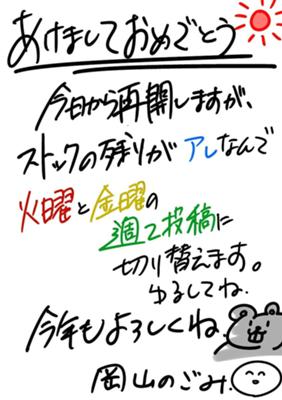 あけましておめでとう
今日から再開しますが、
ストックの残りがアレなんで
火曜と金曜の
週2投稿に
切り替えます。
ゆるしてね.
今年もよろしくね.
岡山のごみ.